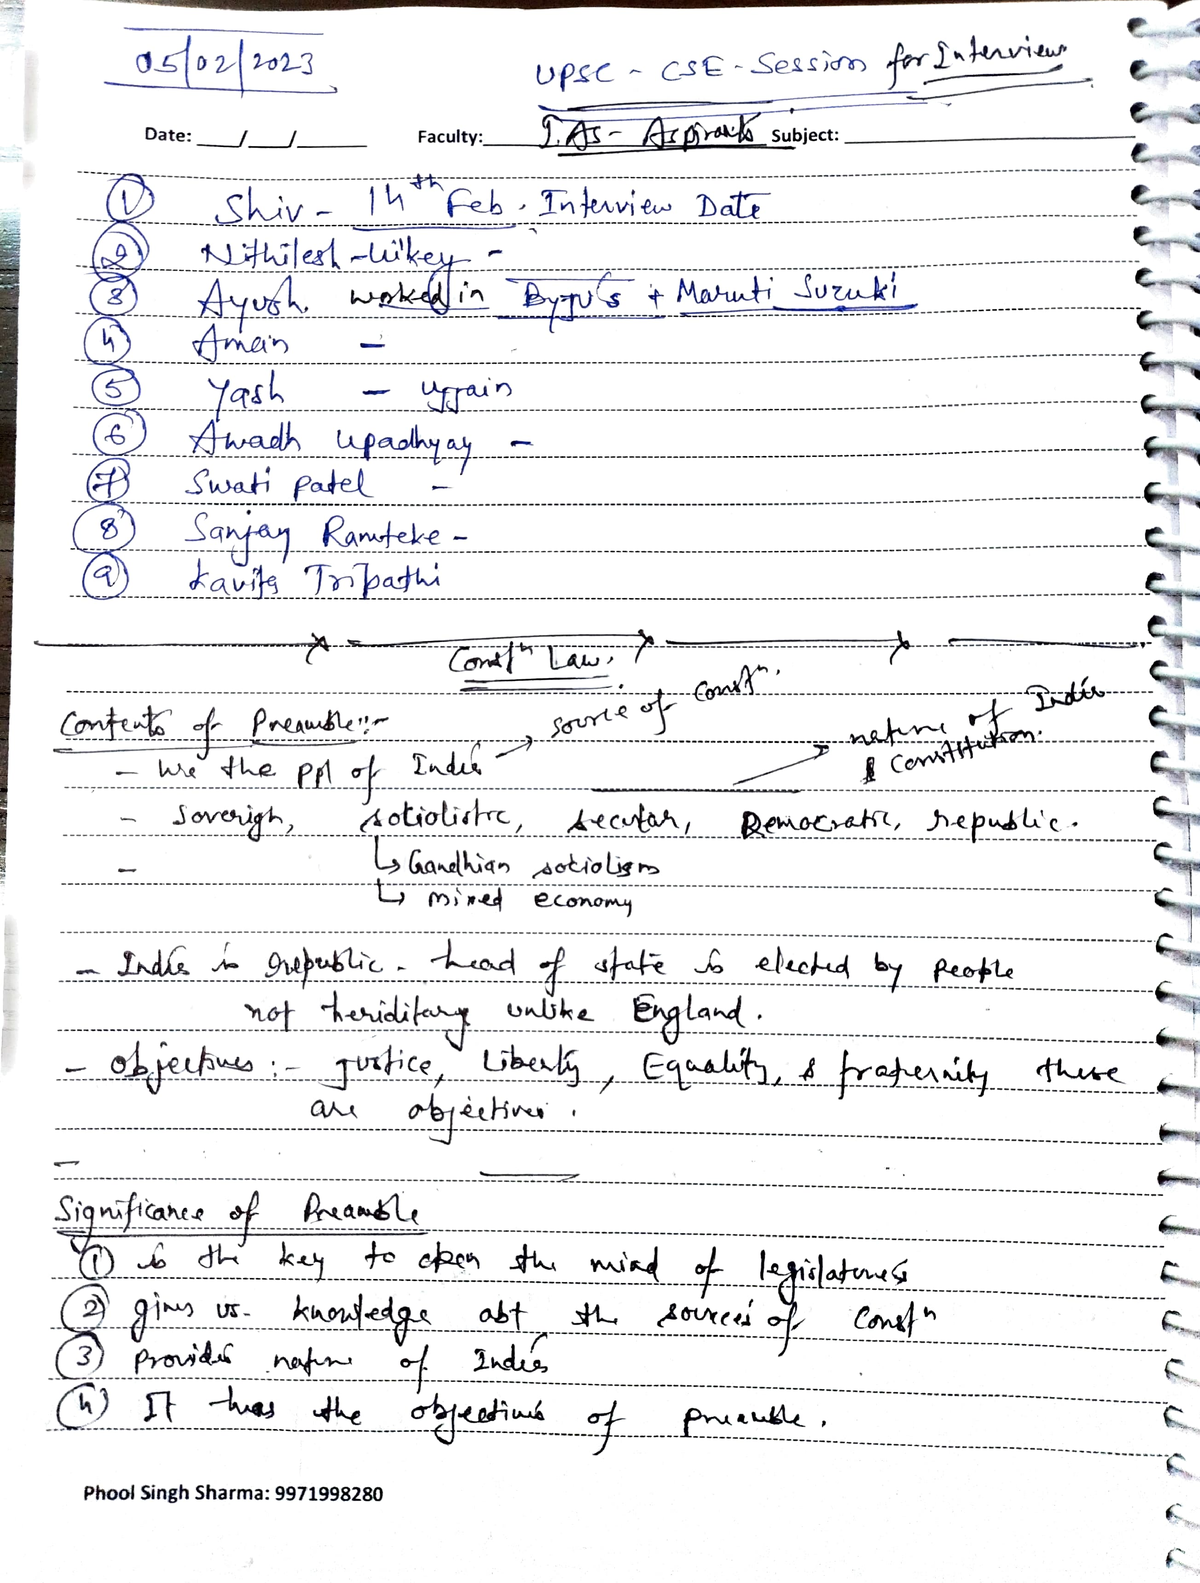 05/02/2023
UPSC - CSE - Session for Interview
Date: ___/___/______ Faculty: I.AS - Aspirants Subject:
① Shiv - 14th Feb. Interview Date
② Nithilesh -
③ Ayush. worked in Byju's + Maruti Suzuki
④ Aman -
⑤ Yash - Ujjain
⑥ Awadh Upadhyay -
⑦ Swati Patel -
⑧ Sanjay Ramteke -
⑨ Kavita Tripathi
Constn Law.
Contents of Preamble:-
- We the ppl of India → source of Constn.
nature of India
Constitution.
- Soverigh, sociolistic, secular, Democratic, republic.
- ↳ Gandhian sociolism
↳ mixed economy
- India is republic. head of state is elected by people
not heriditary unlike England.
- objectives :- justice, Liberty, Equality, & fraternity these
are objectives.
-
Significance of Preamble
① is the key to open the mind of legislatures
② gives us. knowledge abt the sources of Constn
③ provides nature of India
④ It has the objectives of preamble.
Phool Singh Sharma: 9971998280